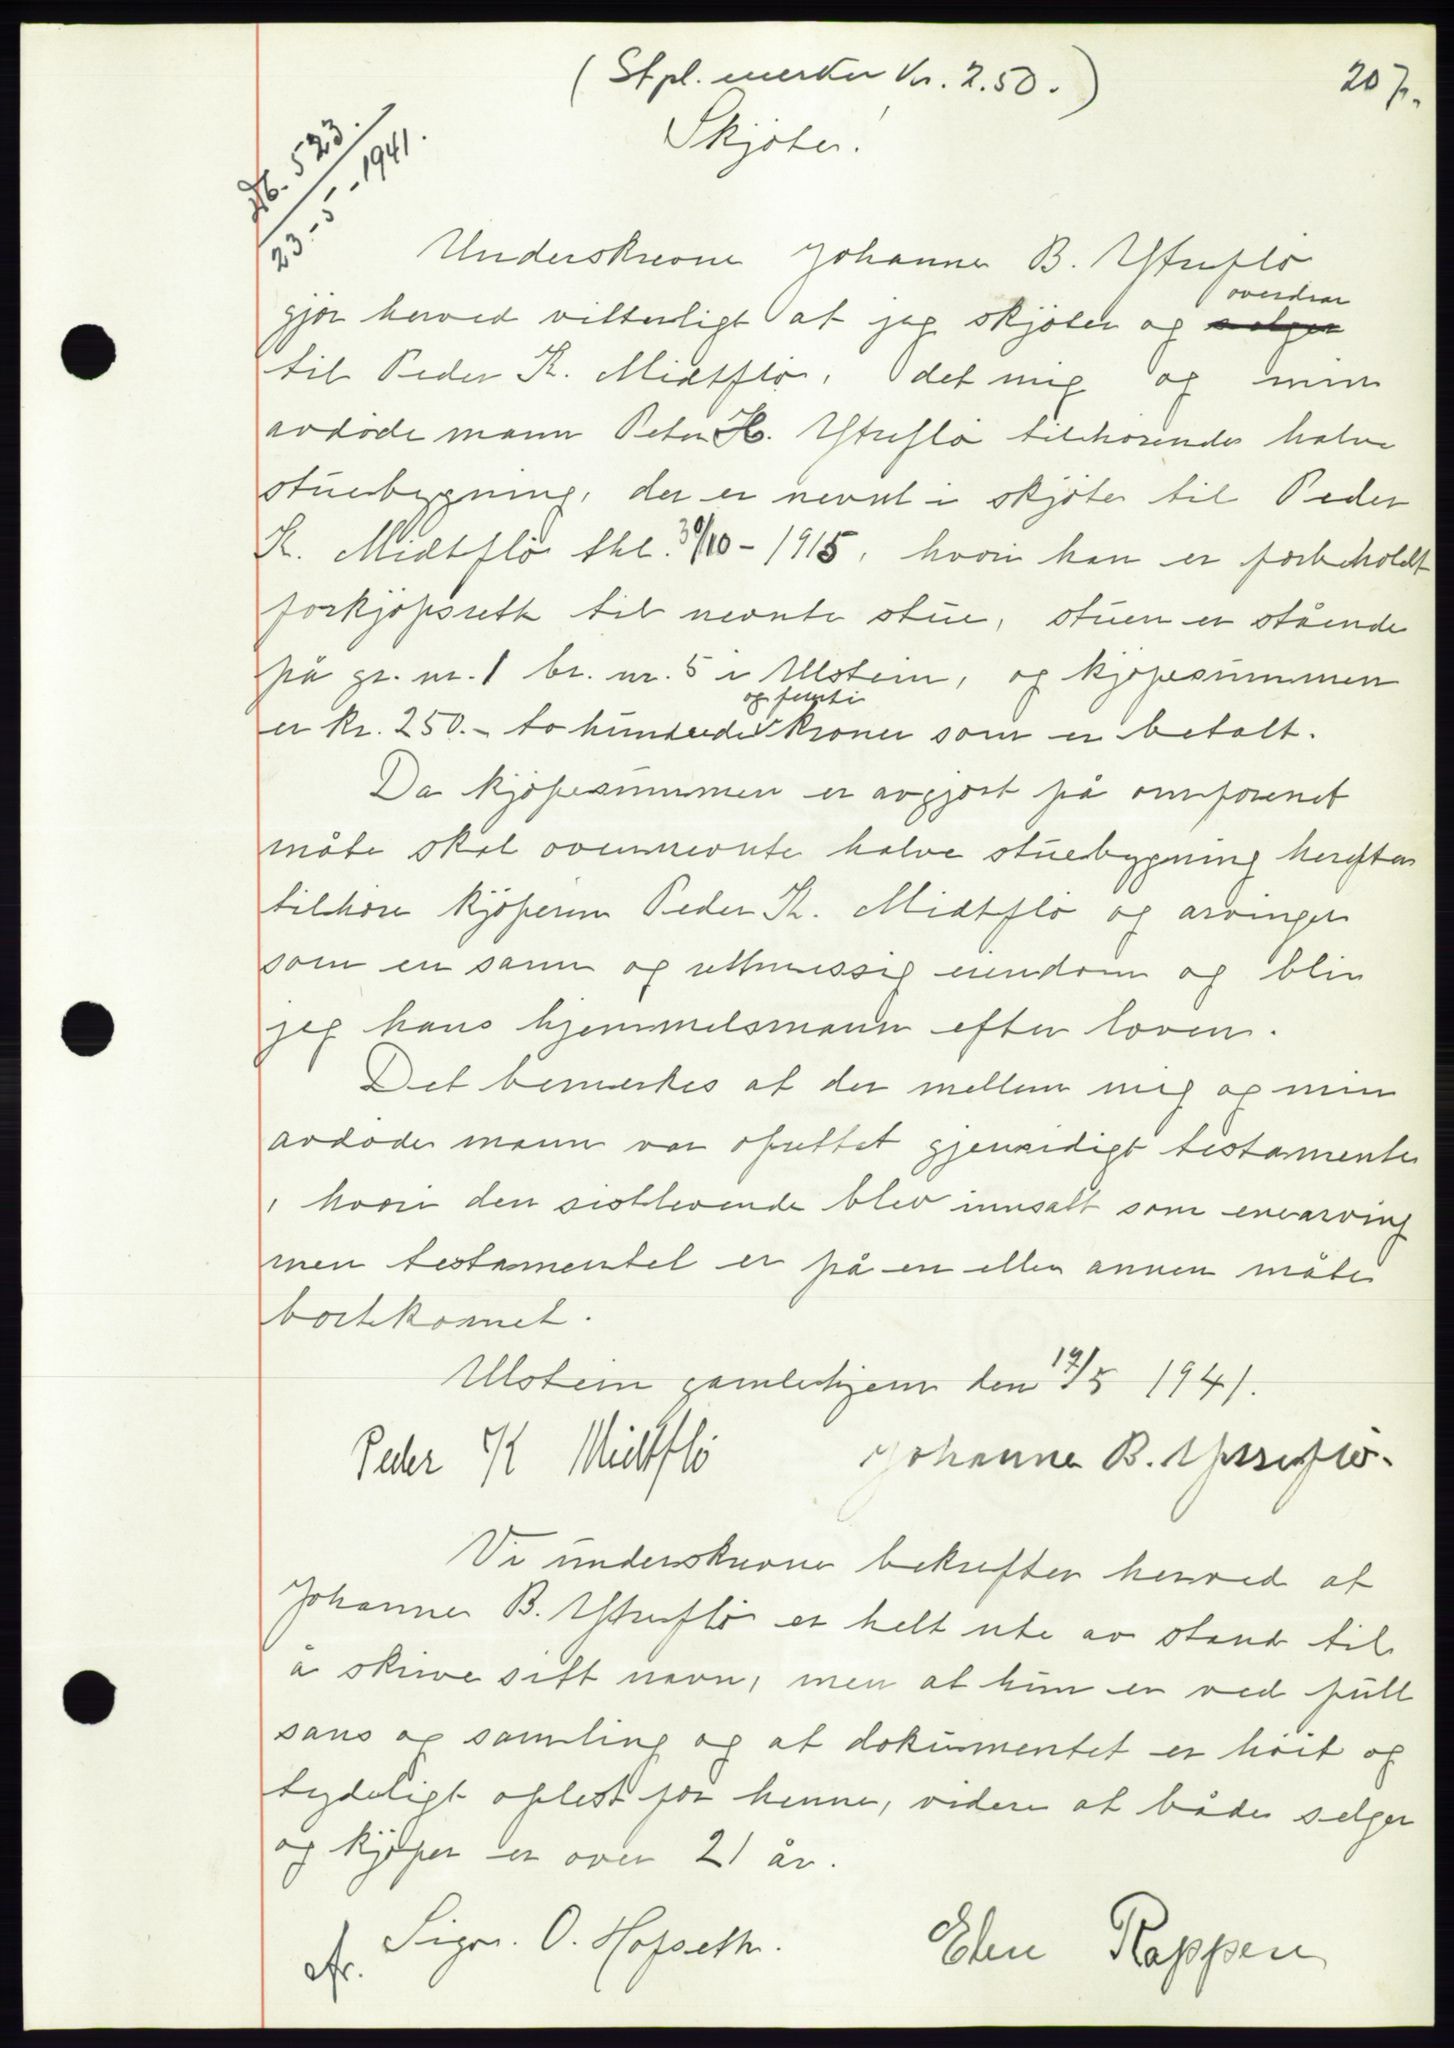 (Stpl. merker kr. 2.50.)
207.
Skjöte!
Db. 523.
23-5-1941.
Underskrevne Johanne B. Ytreflö
gjör herved vitterligt at jeg skjöter og ~~selger~~ overdrar
til Peder K. Midtflö, det mig og min
avdöde mann Peter H. Ytreflö tilhörende halve
stuebygning, der er nevnt i skjöte til Peder
K. Midtflö thl. 30/10-1915, hvori han er forbeholdt
forkjöpsrett til nevnte stue, stuen er stående
på gr. nr. 1 br. nr. 5 i Ulstein, og kjöpesummen
er kr. 250.- to hundrede og femti kroner som er betalt.
Da kjöpesummen er avgjort på omforenet
måte skal ovennevnte halve stuebygning herefter
tilhöre kjöperen Peder K. Midtflö og arvinger
som en sann og rettmessig eiendom og blir
jeg hans hjemmelsmann efter loven.
Det bemerkes at der mellem mig og min
avdöde mann var oprettet gjensidigt testamente
, hvori den sistlevende blev innsatt som enearving
men testamentet er på en eller annen måte
bortkomet.
Ulstein gamlehjem den 17/5 1941.
Peder K Midtflö Johanne B. Ytreflö.
Vi underskrevne bekrefter herved at
Johanne B. Ytreflö er helt ute av stand til
å skrive sitt navn, men at hun er ved full
sans og samling og at dokumentet er höit og
tydeligt oplest for henne, videre at både selger
og kjöper er over 21 år.
Sign. O. Hofseth. Elen Rappen
afr.